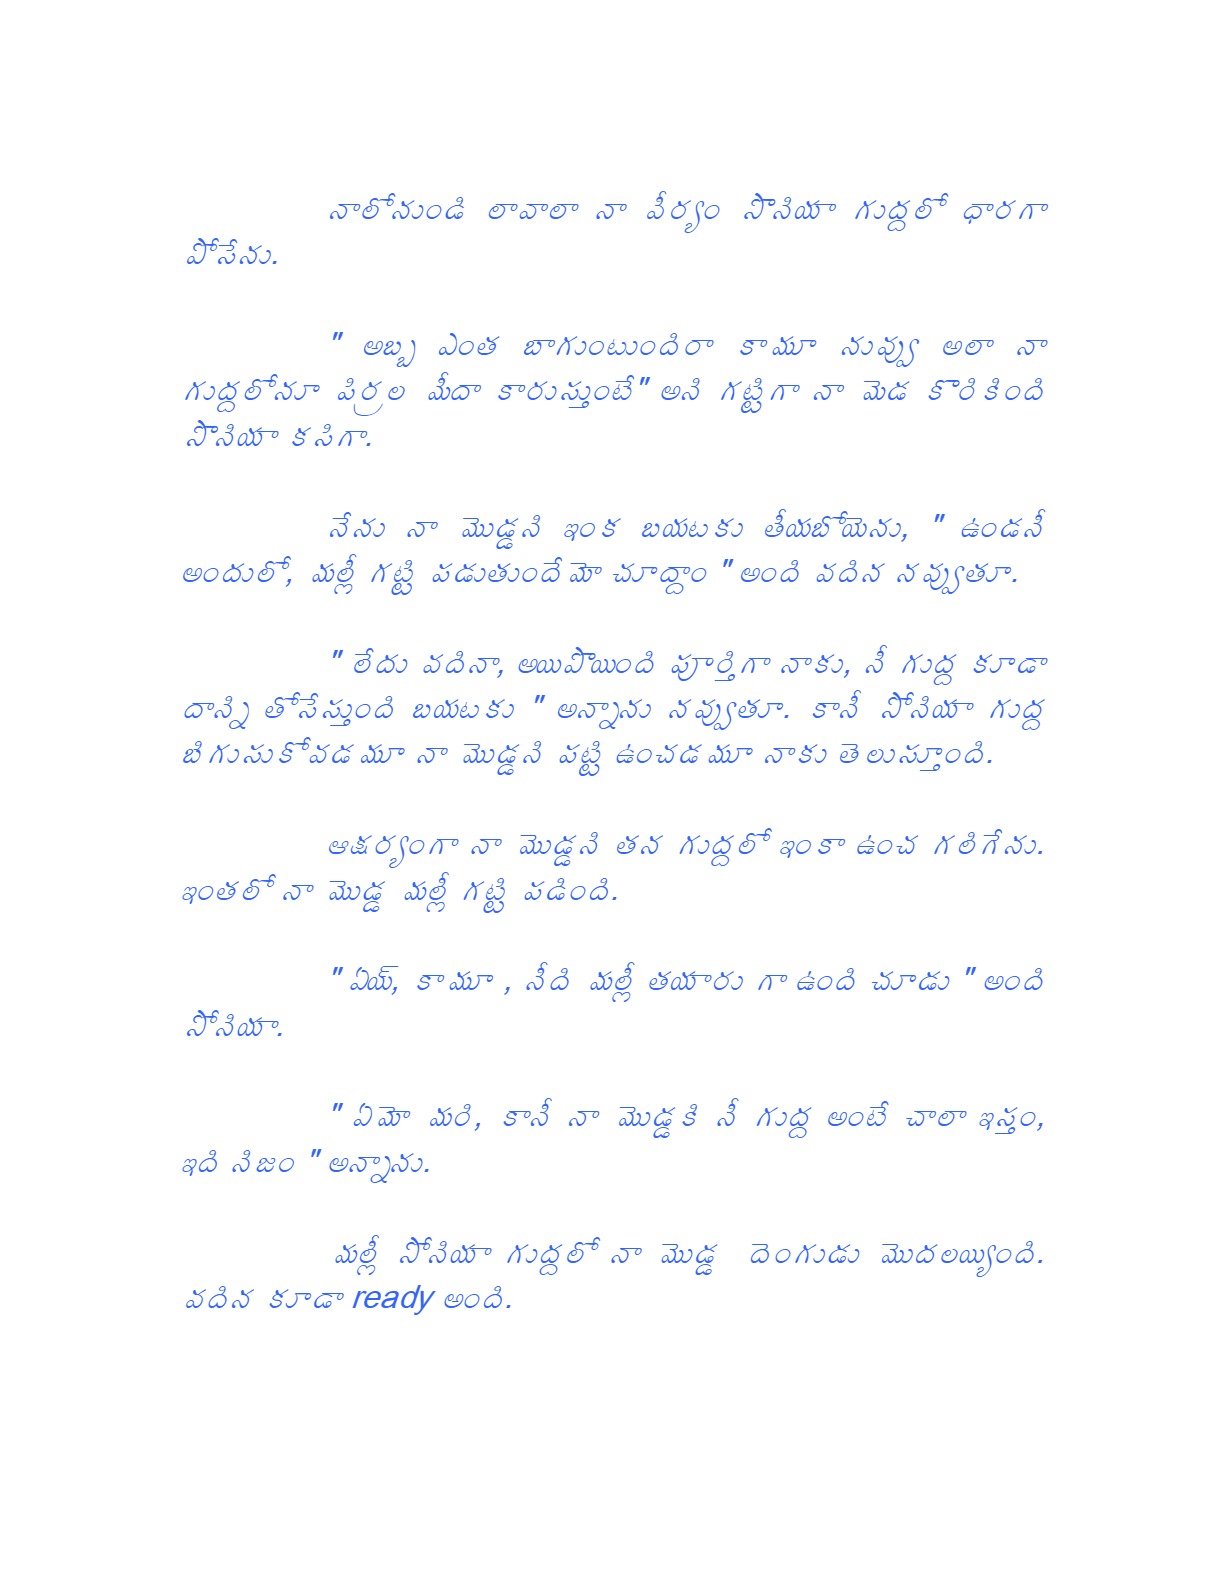 నాలోనుండి లావాలా నా వీర్యం సొనియా గుద్దలో ధారగా
పోసేను.
" అబ్బ ఎంత బాగుంటుందిరా కామూ నువ్వు అలా నా
గుద్దలోనూ పిర్రల మీదా కారుస్తుంటే" అని గట్టిగా నా మెడ కొరికింది
సొనియా కసిగా.
నేను నా మొడ్డని ఇంక బయటకు తీయబోయెను, " ఉండనీ
అందులో, మల్లీ గట్టి పడుతుందేమో చూద్దాం " అంది వదిన నవ్వుతూ.
" లేదు వదినా, అయిపొయింది పూర్తిగా నాకు, నీ గుద్ద కూడా
దాన్ని తోసేస్తుంది బయటకు " అన్నాను నవ్వుతూ. కానీ సోనియా గుద్ద
బిగుసుకోవడమూ నా మొడ్డని పట్టి ఉంచడమూ నాకు తెలుస్తూంది.
ఆక్షర్యంగా నా మొడ్డని తన గుద్దలో ఇంకా ఉంచ గలిగేను.
ఇంతలో నా మొడ్డ మల్లీ గట్టి పడింది.
" ఏయ్, కామూ , నీది మల్లీ తయారు గా ఉంది చూడు " అంది
సోనియా.
" ఏమో మరి, కానీ నా మొడ్డకి నీ గుద్ద అంటే చాలా ఇస్తం,
ఇది నిజం " అన్నాను.
మల్లీ సోనియా గుద్దలో నా మొడ్డ దెంగుడు మొదలయ్యింది.
వదిన కూడా ready అంది.